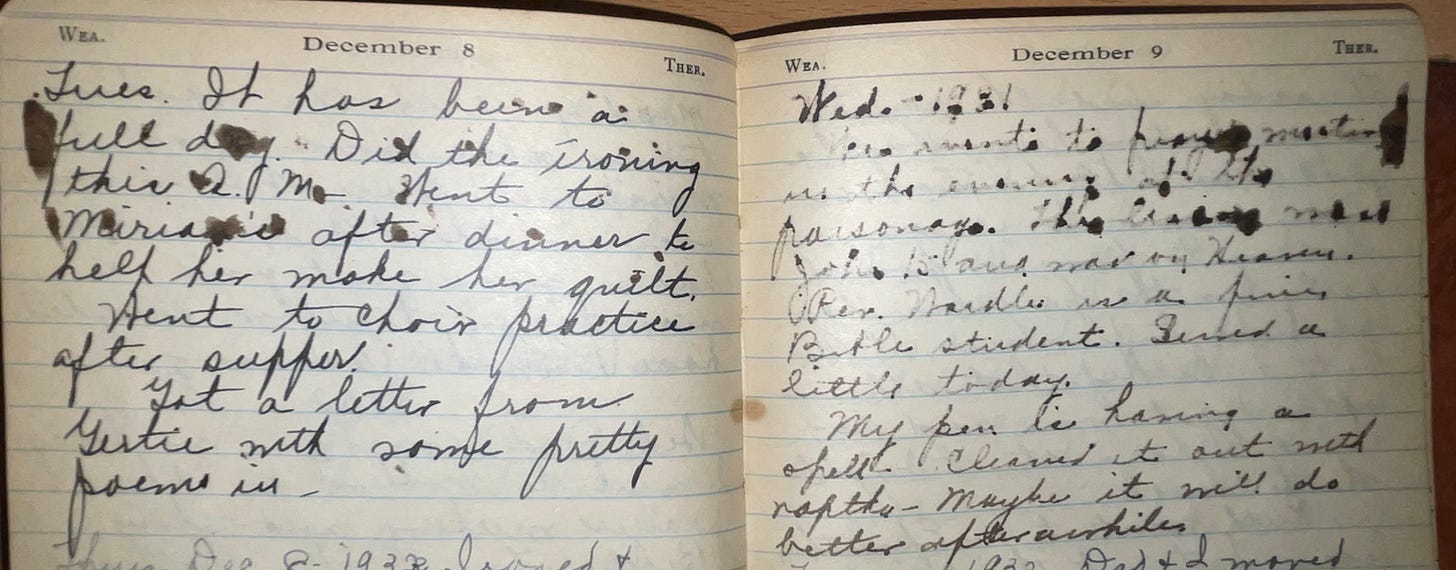 WEA.
December 8
THER.
Tues. It has been a
full day. Did the ironing
this A. M. Went to
Miriam's after dinner to
help her make her quilt.
Went to choir practice
after supper.
Got a letter from
Gertie with some pretty
poems in -
Thurs Dec 8 - 1932 Ironed +
WEA.
December 9
THER.
Wed. - 1931
went to prayer meeting
in the evening at the
parsonage. The lesson was
John 15 and was on Heaven.
Rev. Wardle is a fine
Bible student. Sewed a
little today.
My pen is having a
spell. Cleaned it out with
naptha - Maybe it will do
better after awhile
1932 Dad & I moved